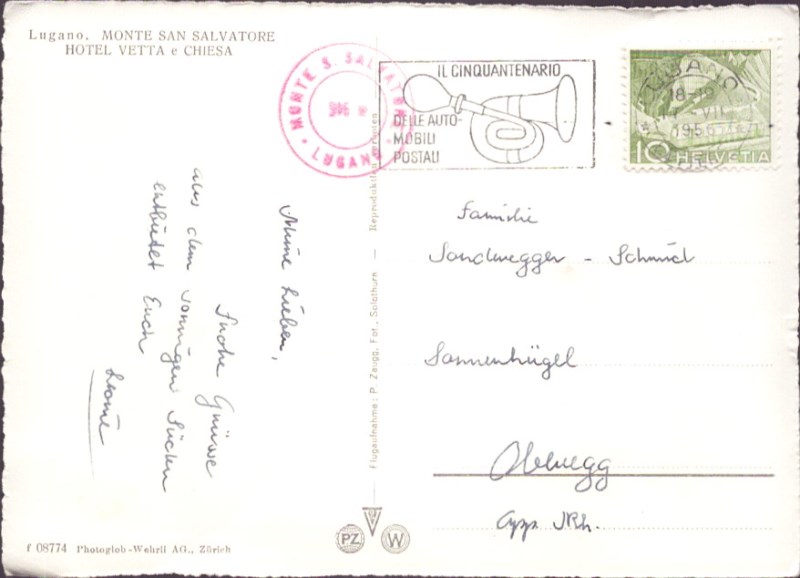 Lugano. MONTE SAN SALVATORE
HOTEL VETTA e CHIESA
MONTE S. SALVATORE
LUGANO
IL CINQUANTENARIO
DELLE AUTO-
MOBILI
POSTALI
LUGANO
18-19
-VII-
1956
10 HELVETIA
Meine Lieben,
Frohe Grüsse
aus dem sonnigen Süden
entbietet Euch
Familie
Sonderegger - Schmid
Sonnenhügel
Oberegg
App. IRh.
Flugaufnahme: P. Zaugg, Fot., Solothurn — Reproduktion verboten
PZ W
f 08774 Photoglob-Wehrli AG., Zürich